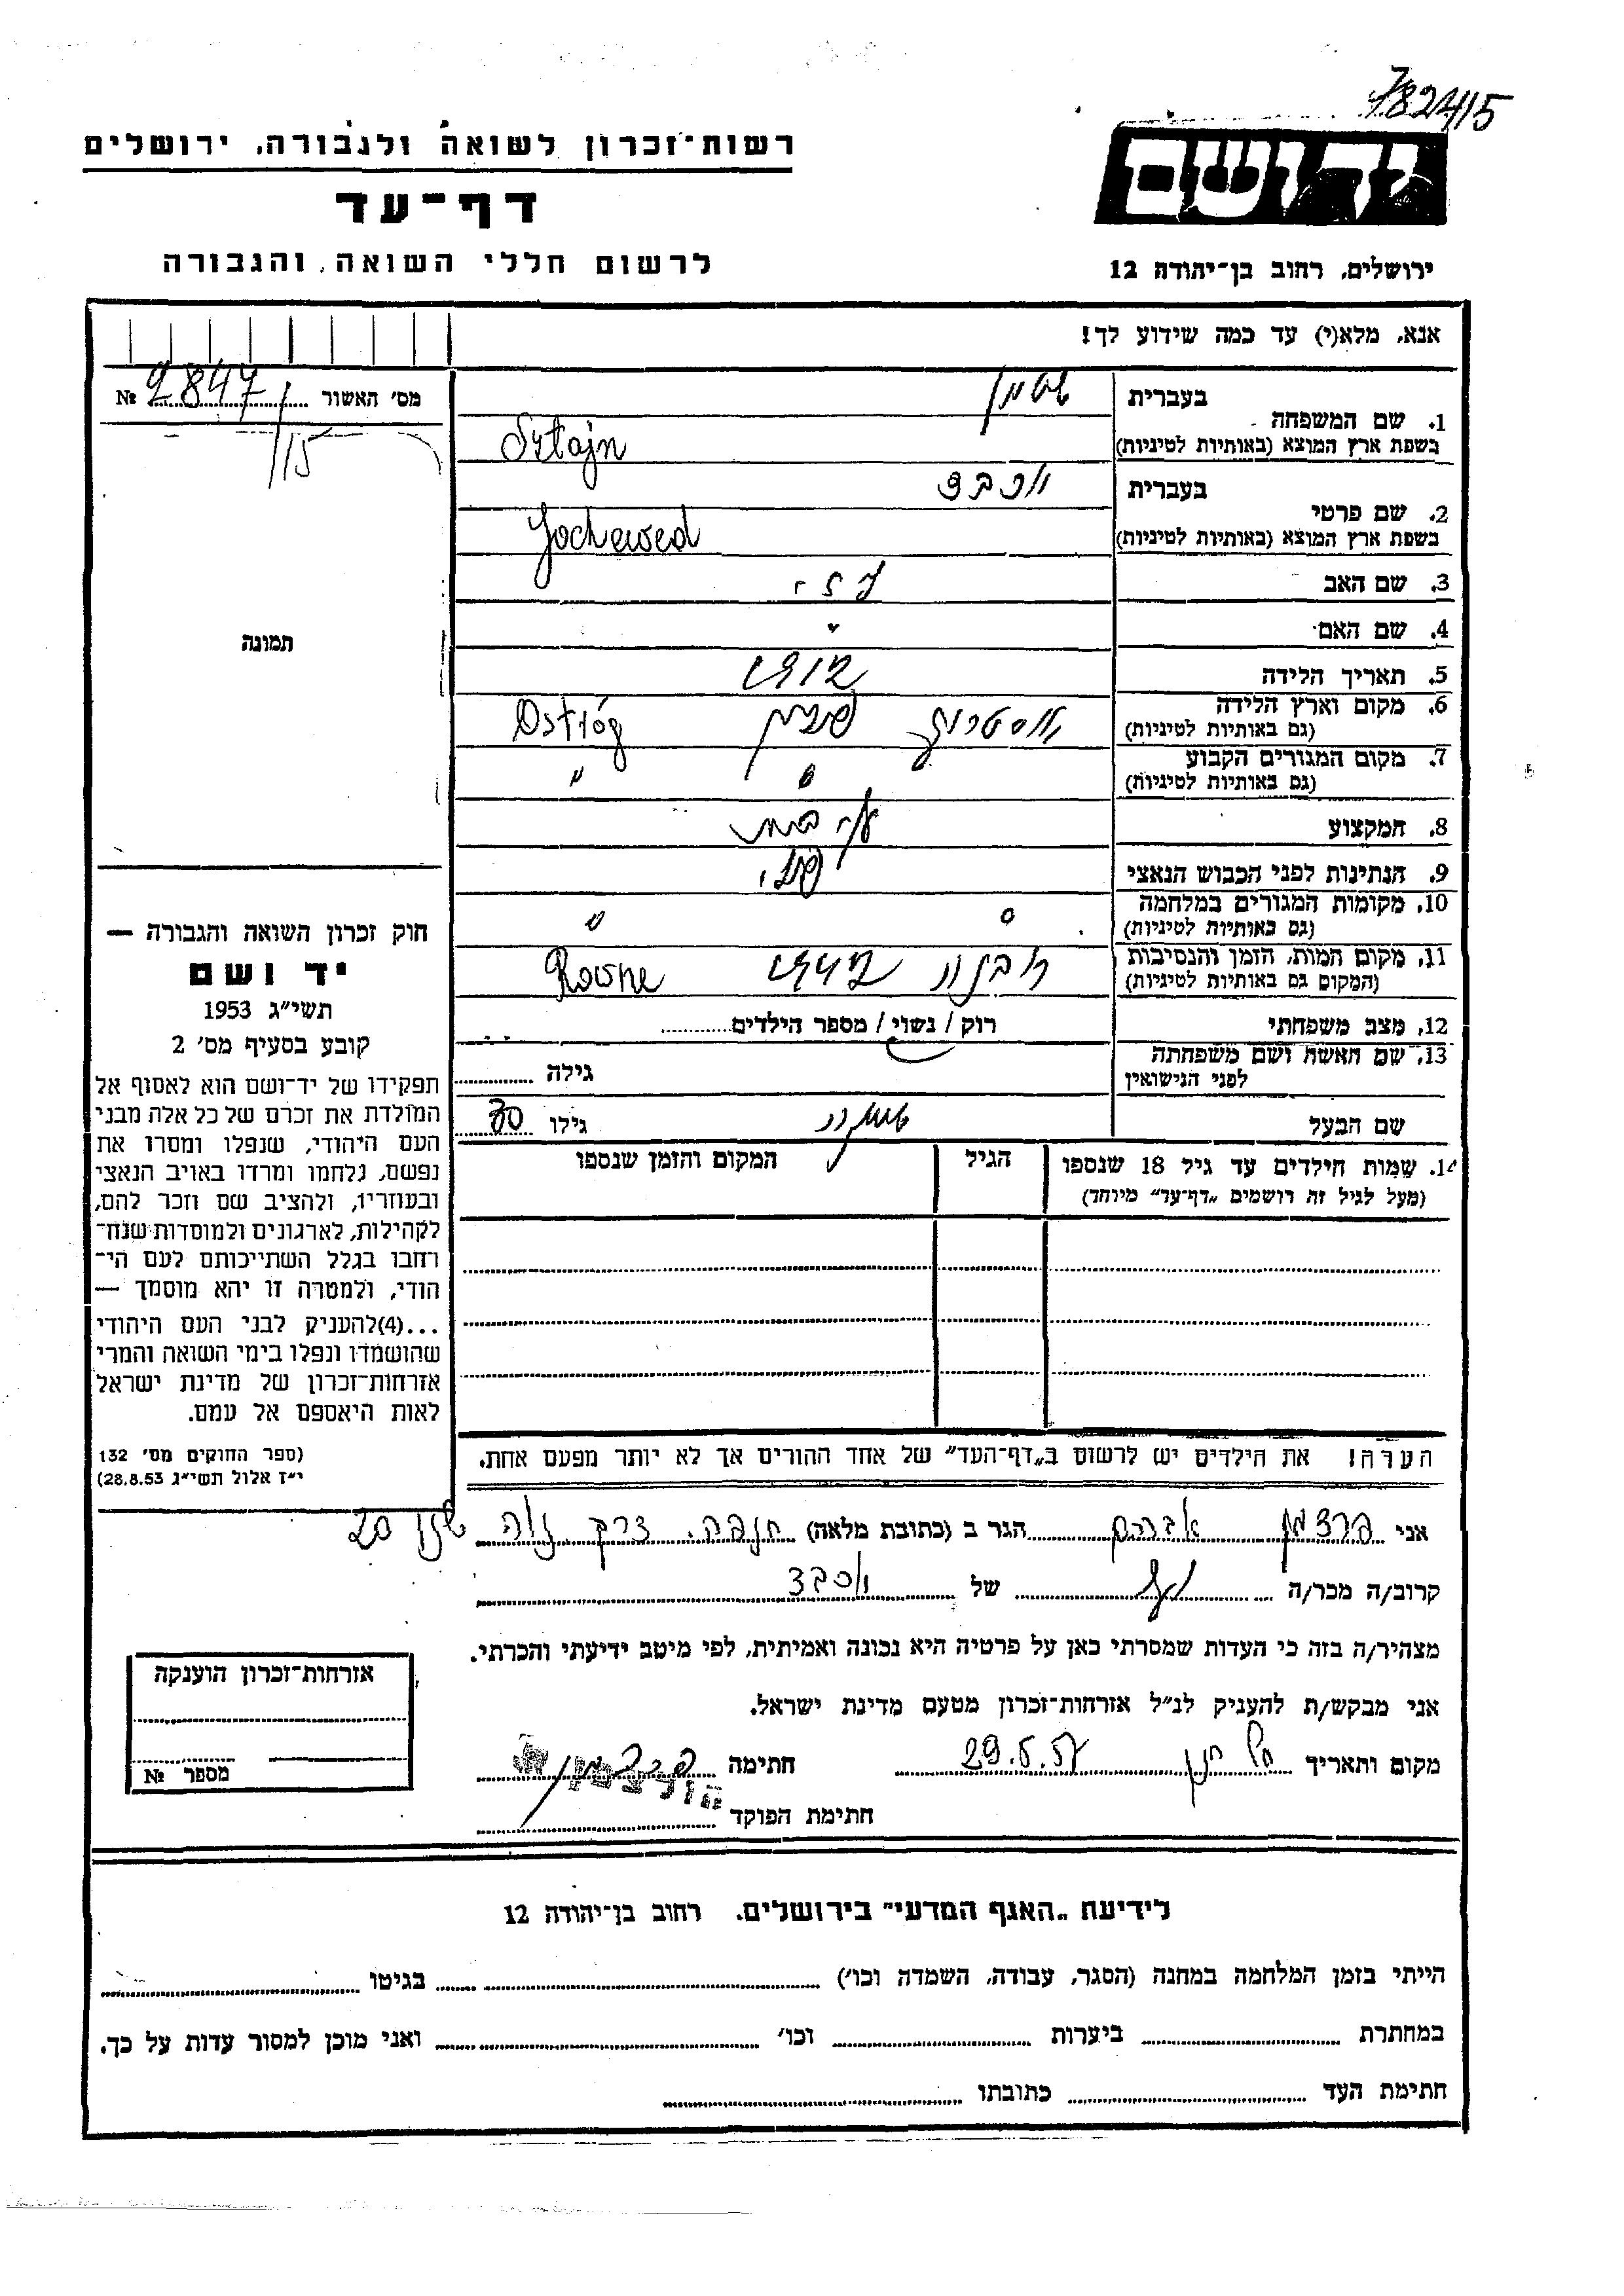 7824/15
רשות־זכרון לשואה ולגבורה, ירושלים
דף־עד
לרשום חללי השואה והגבורה
יד ושם
ירושלים, רחוב בן־יהודה 12
אנא, מלא(י) עד כמה שידוע לך!
מס׳ האשור 2847 №
/15
תמונה
1. שם המשפחה
בעברית
בשפת ארץ המוצא (באותיות לטיניות) Sztajn
2. שם פרטי
בעברית יוכבד
בשפת ארץ המוצא (באותיות לטיניות) Jochewed
3. שם האב
4. שם האם
5. תאריך הלידה
6. מקום וארץ הלידה אוסטרוג פולין Ostróg
(גם באותיות לטיניות)
7. מקום המגורים הקבוע " "
(גם באותיות לטיניות)
8. המקצוע
9. הנתינות לפני הכבוש הנאצי פולני
10. מקומות המגורים במלחמה
(גם באותיות לטיניות)
11. מקום המות, הזמן והנסיבות רובנה Rowne
(המקום גם באותיות לטיניות)
12. מצב משפחתי רוק / נשוי / מספר הילדים
13. שם האשה ושם משפחתה
לפני הנישואין גילה
שם הבעל גילו 30
14. שמות הילדים עד גיל 18 שנספו הגיל המקום והזמן שנספו
(מעל לגיל זה רושמים „דף־עד״ מיוחד)
הערה! את הילדים יש לרשום ב„דף־העד״ של אחד ההורים אך לא יותר מפעם אחת.
חוק זכרון השואה והגבורה —
יד ושם
תשי״ג 1953
קובע בסעיף מס׳ 2
תפקידו של יד־ושם הוא לאסוף אל
המולדת את זכרם של כל אלה מבני
העם היהודי, שנפלו ומסרו את
נפשם, נלחמו ומרדו באויב הנאצי
ובעוזריו, ולהציב שם וזכר להם,
לקהילות, לארגונים ולמוסדות שנח־
רחבו בגלל השתייכותם לעם הי־
הודי, ולמטרה זו יהא מוסמך —
...(4)להעניק לבני העם היהודי
שהושמדו ונפלו בימי השואה והמרי
אזרחות־זכרון של מדינת ישראל
לאות היאספם אל עמם.
(ספר החוקים מס׳ 132
י״ז אלול תשי״ג 28.8.53)
אני אברהם הגר ב (כתובת מלאה) חיפה, דרך נוה שאנן 20
קרוב/ה מכר/ה של יוכבד
מצהיר/ה בזה כי העדות שמסרתי כאן על פרטיה היא נכונה ואמיתית, לפי מיטב ידיעתי והכרתי.
אני מבקש/ת להעניק לנ״ל אזרחות־זכרון מטעם מדינת ישראל.
מקום ותאריך 29.5.57 חתימה
חתימת הפוקד
אזרחות־זכרון הוענקה
מספר №
לידיעת „האגף המדעי״ בירושלים, רחוב בן־יהודה 12
הייתי בזמן המלחמה במחנה (הסגר, עבודה, השמדה וכו׳) בגיטו
במחתרת ביערות וכו׳ ואני מוכן למסור עדות על כך.
חתימת העד כתובתו